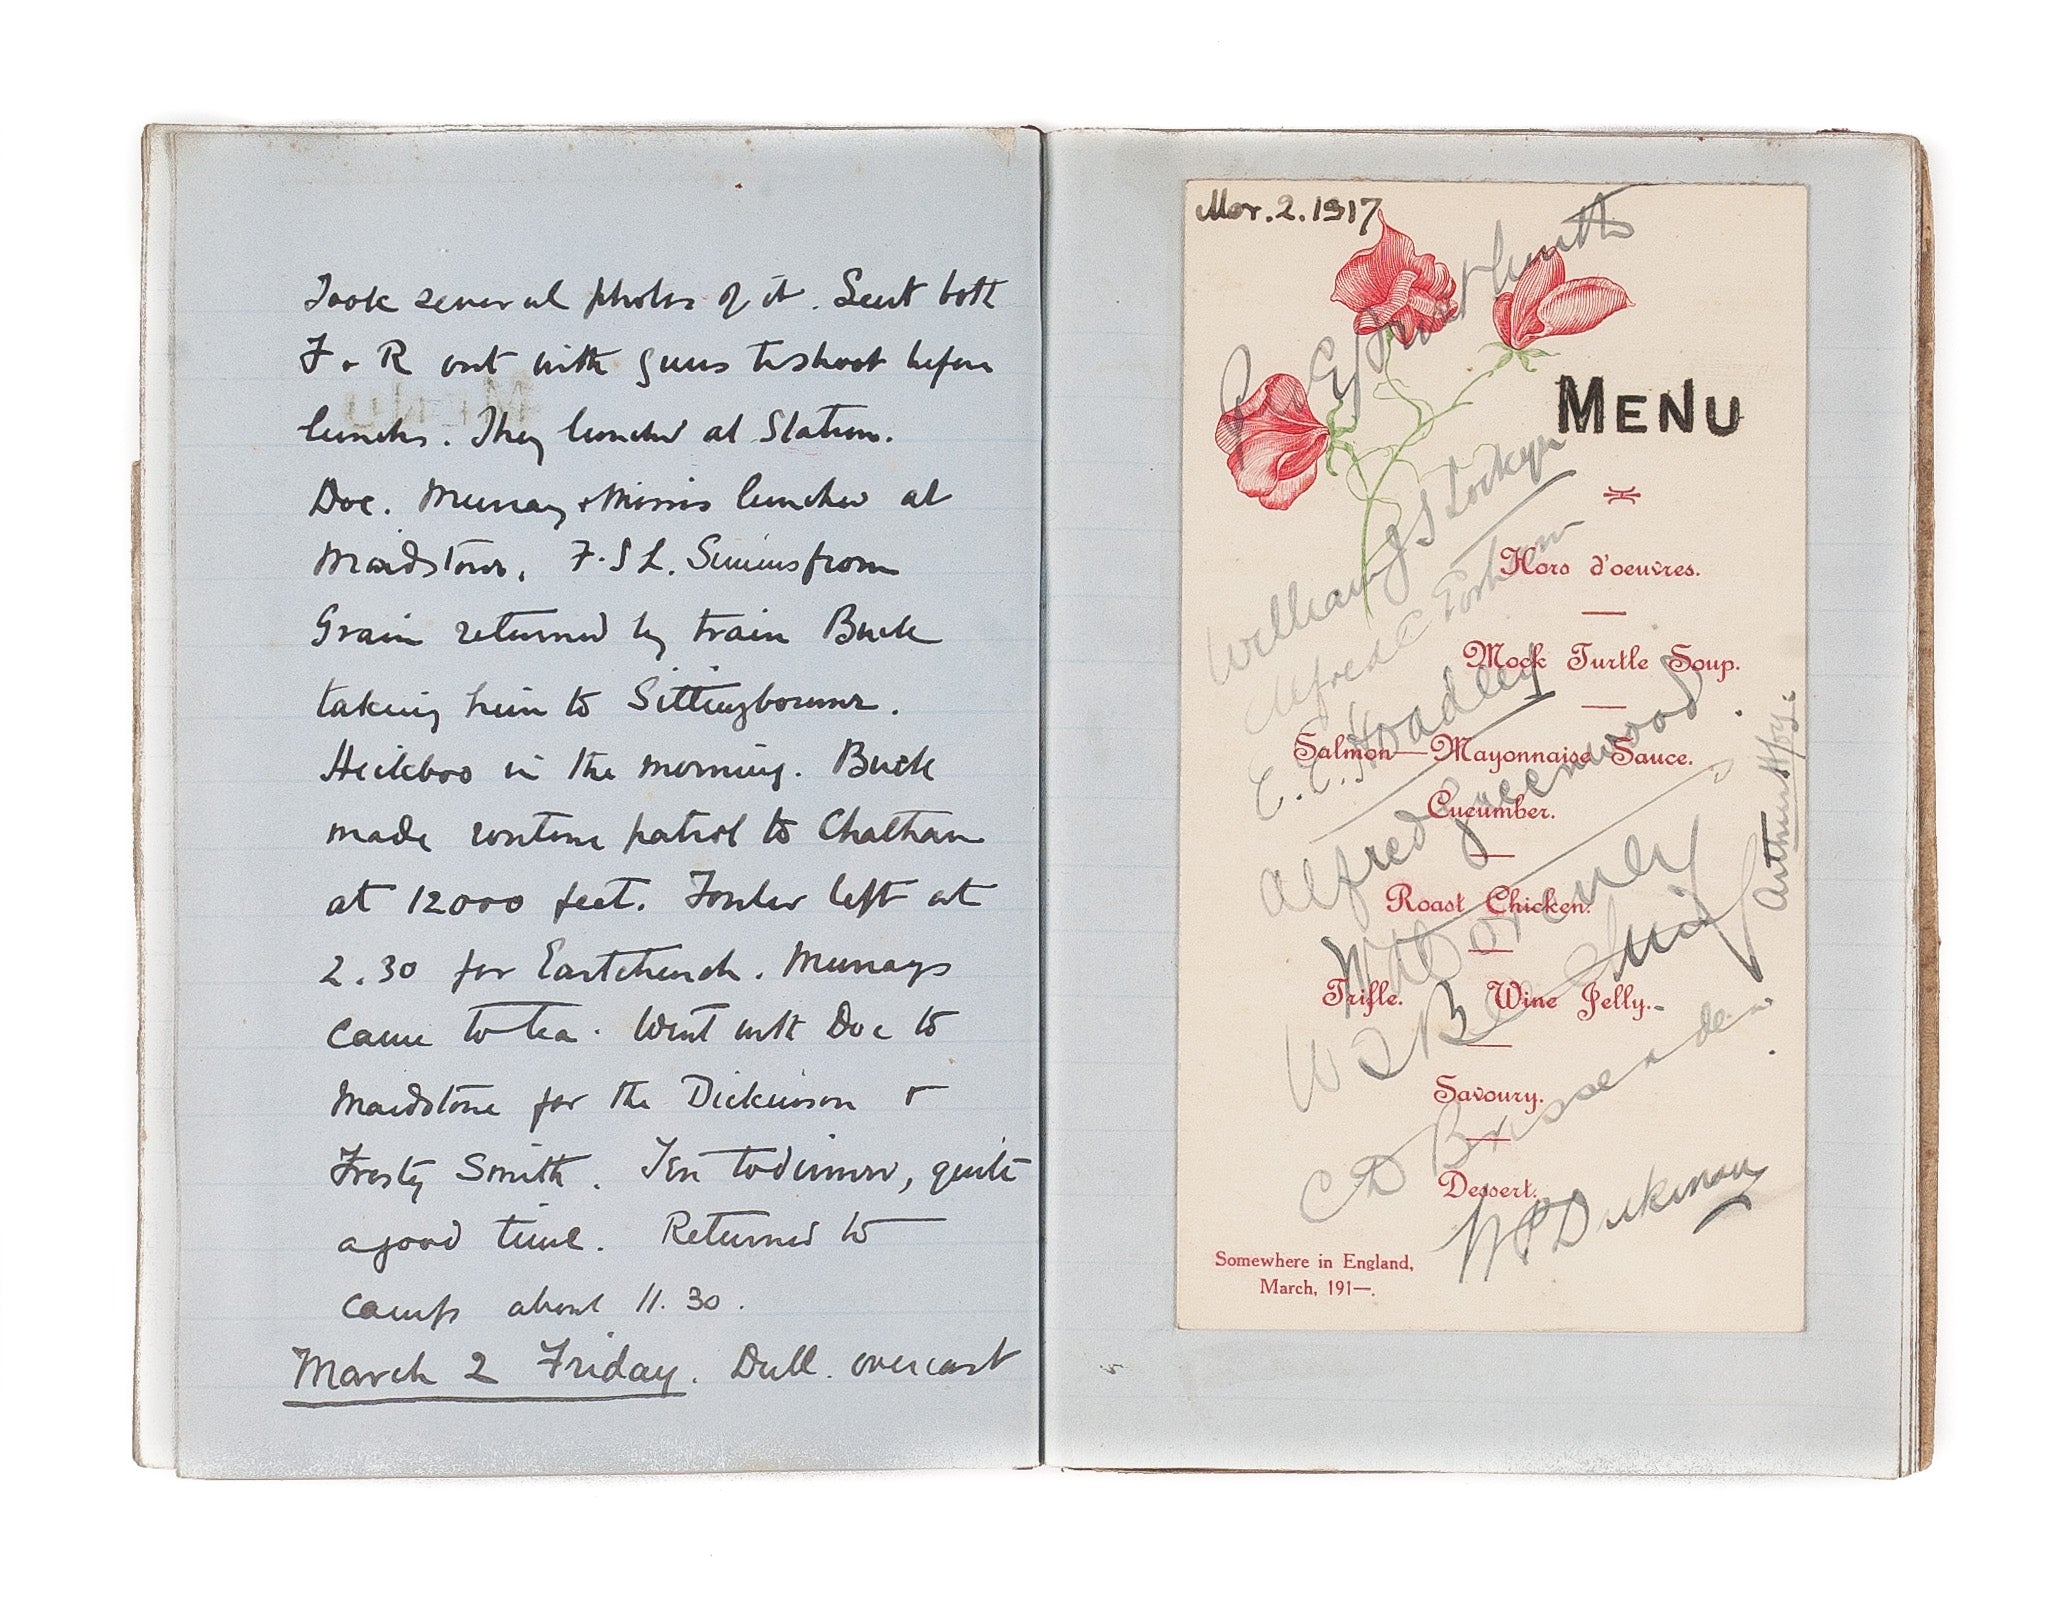 Took several photos of it. Sent both
F & R out with guns to shoot before
lunch. They lunched at Station.
Doc. Murray & Morris lunched at
Maidstone. F.S.L. Simms from
Grain returned by train Buck
taking him to Sittingbourne.
in the morning. Buck
made routine patrol to Chatham
at 12000 feet. Fowler left at
2.30 for Eastchurch. Murrays
came to tea. Went with Doc to
Maidstone for the Dickinson &
Frosty Smith. Ten to dinner, quite
a good time. Returned to
camp about 11.30.
March 2 Friday. Dull. overcast
Mar. 2. 1917
Frost Smith
MENU
William J S Lockyer
Hors d'oeuvres.
Alfred C
Mock Turtle Soup.
E. E. Hoadley
Salmon—Mayonnaise Sauce.
Alfred Greenwood
Cucumber.
Arthur
Roast Chicken.
Trifle. Wine Jelly.
Savoury.
C D Brissenden
Dessert.
W P Dickinson
Somewhere in England,
March, 191—.